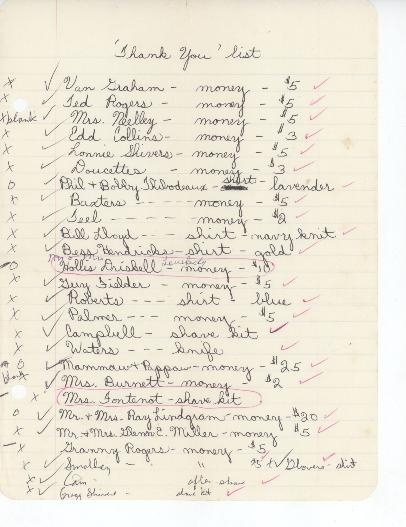 "Thank You" list
x ✓ Van Graham - money - $5 ✓
x ✓ Ted Rogers - money - $5 ✓
x blank ✓ Mrs. Neelley - money - $5 ✓
x ✓ Edd Collins - money - $3 ✓
x ✓ Lonnie Shivers - money - $5 ✓
x ✓ Doucettes - money - $3 ✓
o ✓ Phil & Bobby Thibodeaux - lavender ✓
x ✓ Baxters - - - - - money - $5 ✓
x ✓ Teel - - - - - money - $2 ✓
x ✓ Bill Floyd - - shirt - navy knit ✓
x ✓ Bess Hendricks - shirt - gold ✓
o Hollis Driskell - money - $10
x ✓ Gery Fidder - money - $5 ✓
x ✓ Roberts - - - shirt - blue ✓
x ✓ Palmer - - - money - $5 ✓
x ✓ Campbell - shave kit ✓
x ✓ Waters - - - knife ✓
o ✓ Mammaw & Pappaw - money - $25 ✓
blank ✓ Mrs. Burnett - money - $2 ✓
x ✓ Mrs. Fontenot - shave kit
o ✓ Mr. & Mrs. Ray Lindgram - money - $20 ✓
x ✓ Mr. & Mrs. Glenn E. Miller - money $5 ✓
x ✓ Granny Rogers - money - $5 ✓
x ✓ Smelley - " " $5 ✓
x ✓ Cain - after shave ✓
x ✓ Gregg Shivers - shave kit ✓